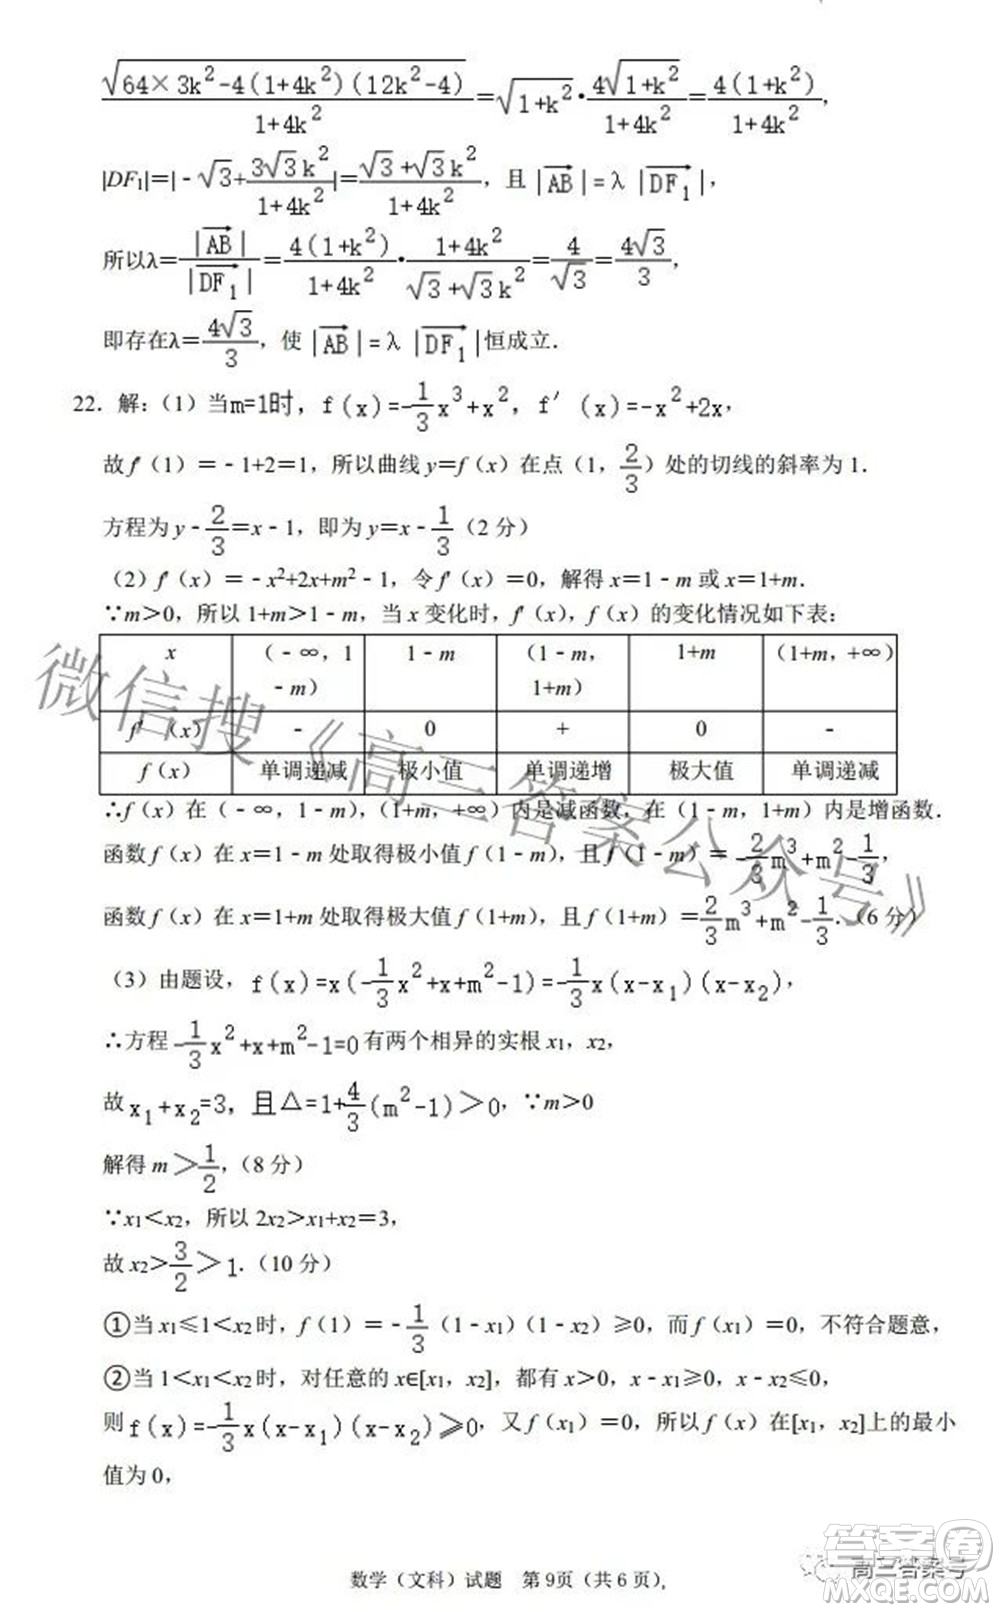 √(64×3k²-4(1+4k²)(12k²-4))/(1+4k²)=√(1+k²)·4√(1+k²)/(1+4k²)=4(1+k²)/(1+4k²)，
|DF₁|=|-√3+3√3k²/(1+4k²)|=(√3+√3k²)/(1+4k²)，且|AB|=λ|DF₁|，
所以λ=|AB|/|DF₁|=4(1+k²)/(1+4k²)·(1+4k²)/(√3+√3k²)=4/√3=4√3/3，
即存在λ=4√3/3，使|AB|=λ|DF₁|恒成立．
22．解：（1）当m=1时，f(x)=-1/3x³+x²，f′(x)=-x²+2x，
故f′（1）=-1+2=1，所以曲线y=f（x）在点（1，2/3）处的切线的斜率为1．
方程为y-2/3=x-1，即为y=x-1/3（2分）
（2）f′（x）=-x²+2x+m²-1，令f′（x）=0，解得x=1-m或x=1+m．
∵m＞0，所以1+m＞1-m，当x变化时，f′（x），f（x）的变化情况如下表：
x （-∞，1-m） 1-m （1-m，1+m） 1+m （1+m，+∞）
f′（x） - 0 + 0 -
f（x） 单调递减 极小值 单调递增 极大值 单调递减
∴f（x）在（-∞，1-m），（1+m，+∞）内是减函数，在（1-m，1+m）内是增函数．
函数f（x）在x=1-m处取得极小值f（1-m），且f（1-m）=-2/3m³+m²-1/3，
函数f（x）在x=1+m处取得极大值f（1+m），且f（1+m）=2/3m³+m²-1/3．（6分）
（3）由题设，f(x)=x(-1/3x²+x+m²-1)=-1/3x(x-x₁)(x-x₂)，
∴方程-1/3x²+x+m²-1=0有两个相异的实根x₁，x₂，
故x₁+x₂=3，且△=1+4/3(m²-1)＞0，∵m＞0
解得m＞1/2，（8分）
∵x₁＜x₂，所以2x₂＞x₁+x₂=3，
故x₂＞3/2＞1．（10分）
①当x₁≤1＜x₂时，f（1）=-1/3（1-x₁）（1-x₂）≥0，而f（x₁）=0，不符合题意，
②当1＜x₁＜x₂时，对任意的x∈[x₁，x₂]，都有x＞0，x-x₁≥0，x-x₂≤0，
则f(x)=-1/3x(x-x₁)(x-x₂)≥0，又f（x₁）=0，所以f（x）在[x₁，x₂]上的最小
值为0，
数学（文科）试题　第9页（共6页），
微信搜《高三答案公众号》
高三答案号
答案圈
MXQE.COM